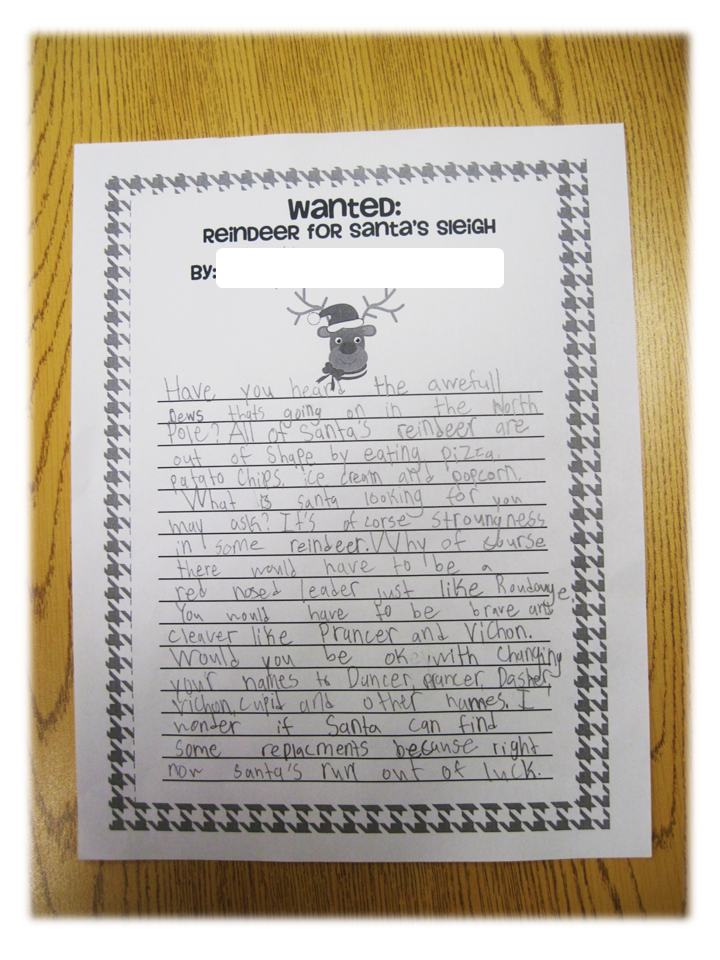 Wanted:
Reindeer for Santa's Sleigh
By:
Have you heard the awefull
news thats going on in the North
Pole? All of Santa's reindeer are
out of shape by eating pizza,
patato chips, ice cream and popcorn.
What is santa looking for you
may ask? It's of corse stroungness
in some reindeer. Why of course
there would have to be a
red nosed leader just like
You would have to be brave and
cleaver like Prancer and Vichon.
Would you be ok with changing
your names to Dancer, prancer, Dasher,
Vichon, cupid and other names. I
wonder if Santa can find
some replacments because right
now santa's run out of luck.